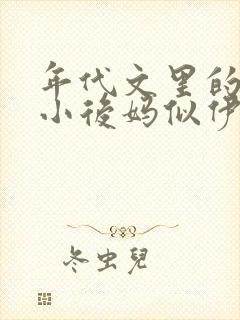 年代文里的
小後妈似伊
冬虫兒